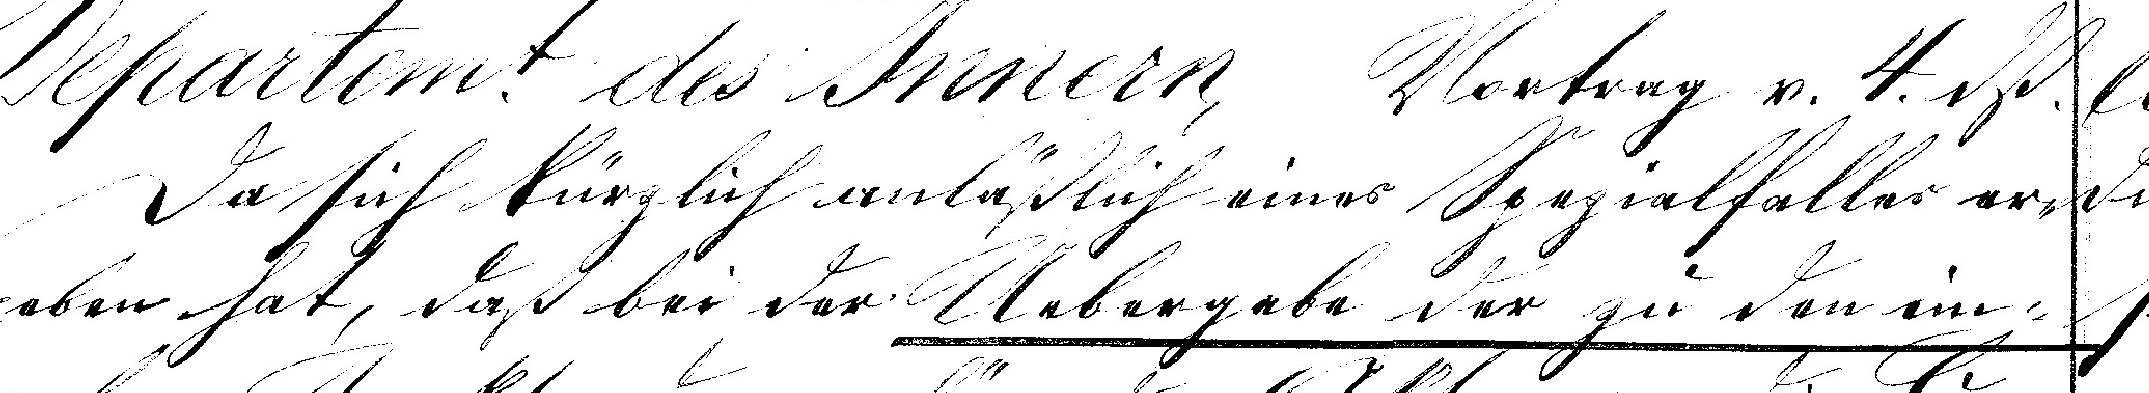 Departemt des Innern, Vortrag v. 4. dß.
Da sich kürzlich anläßlich eines Spezialfalles er-
geben hat, daß bei der Uebergabe der zu den ein-